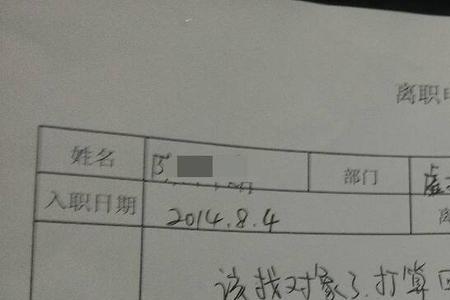 离职申
姓名 部门 虚
入职日期 2014.8.4 离
该找对象了,打算回